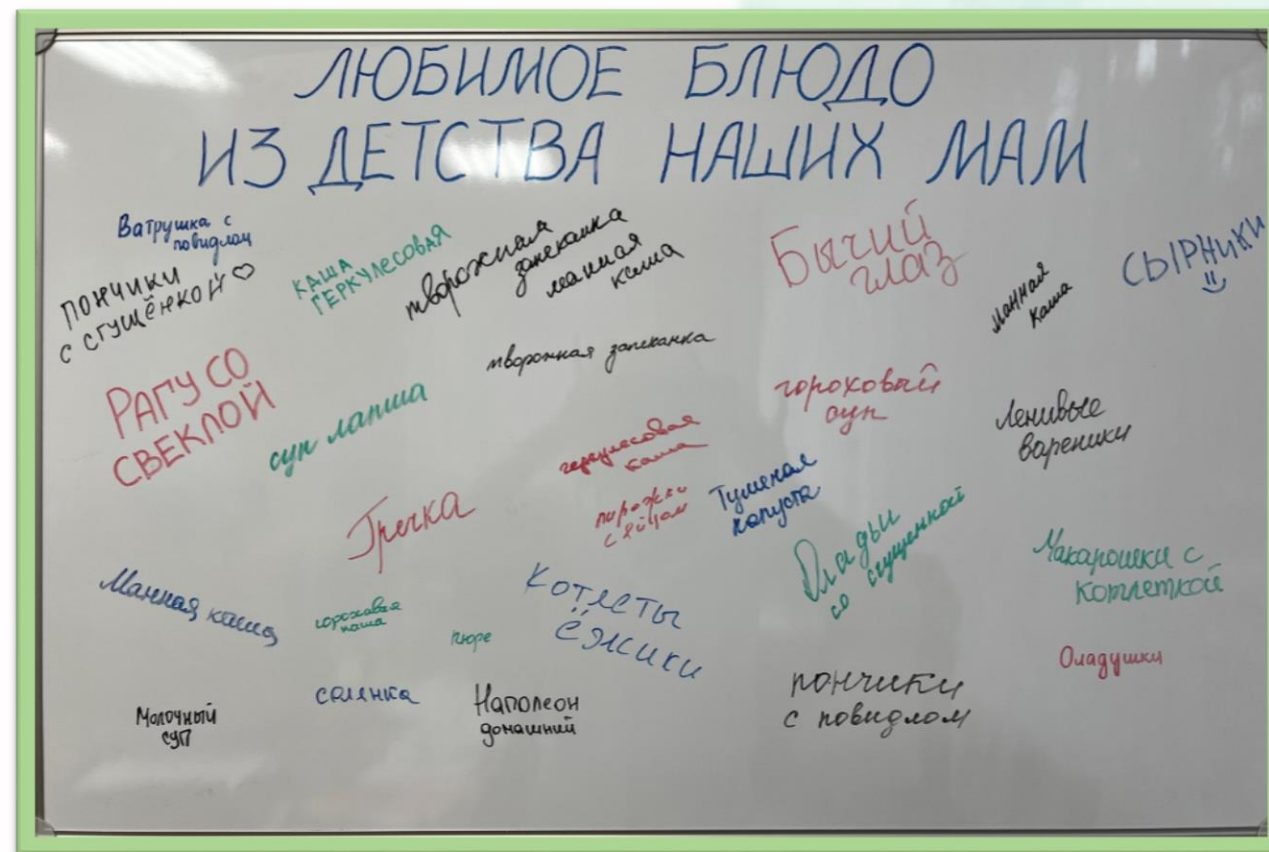 ЛЮБИМОЕ БЛЮДО
ИЗ ДЕТСТВА НАШИХ МАМ
Ватрушка с
повидлом
ПОНЧИКИ
С СГУЩЁНКОЙ ♡
КАША
ГЕРКУЛЕСОВАЯ
творожная
запеканка
манная
каша
Бычий
глаз
манная
каша
СЫРНИКИ
творожная запеканка
РАГУ СО
СВЕКЛОЙ
суп лапша
гороховый
суп
Ленивые
вареники
геркулесовая
каша
Гречка
пирожки
с яйцом
Тушеная
капуста
Оладьи
со сгущенкой
Макарошки с
котлеткой
Манная каша
гороховая
каша
пюре
Котлеты
ёжики
Оладушки
Молочный
суп
солянка
Наполеон
домашний
пончики
с повидлом